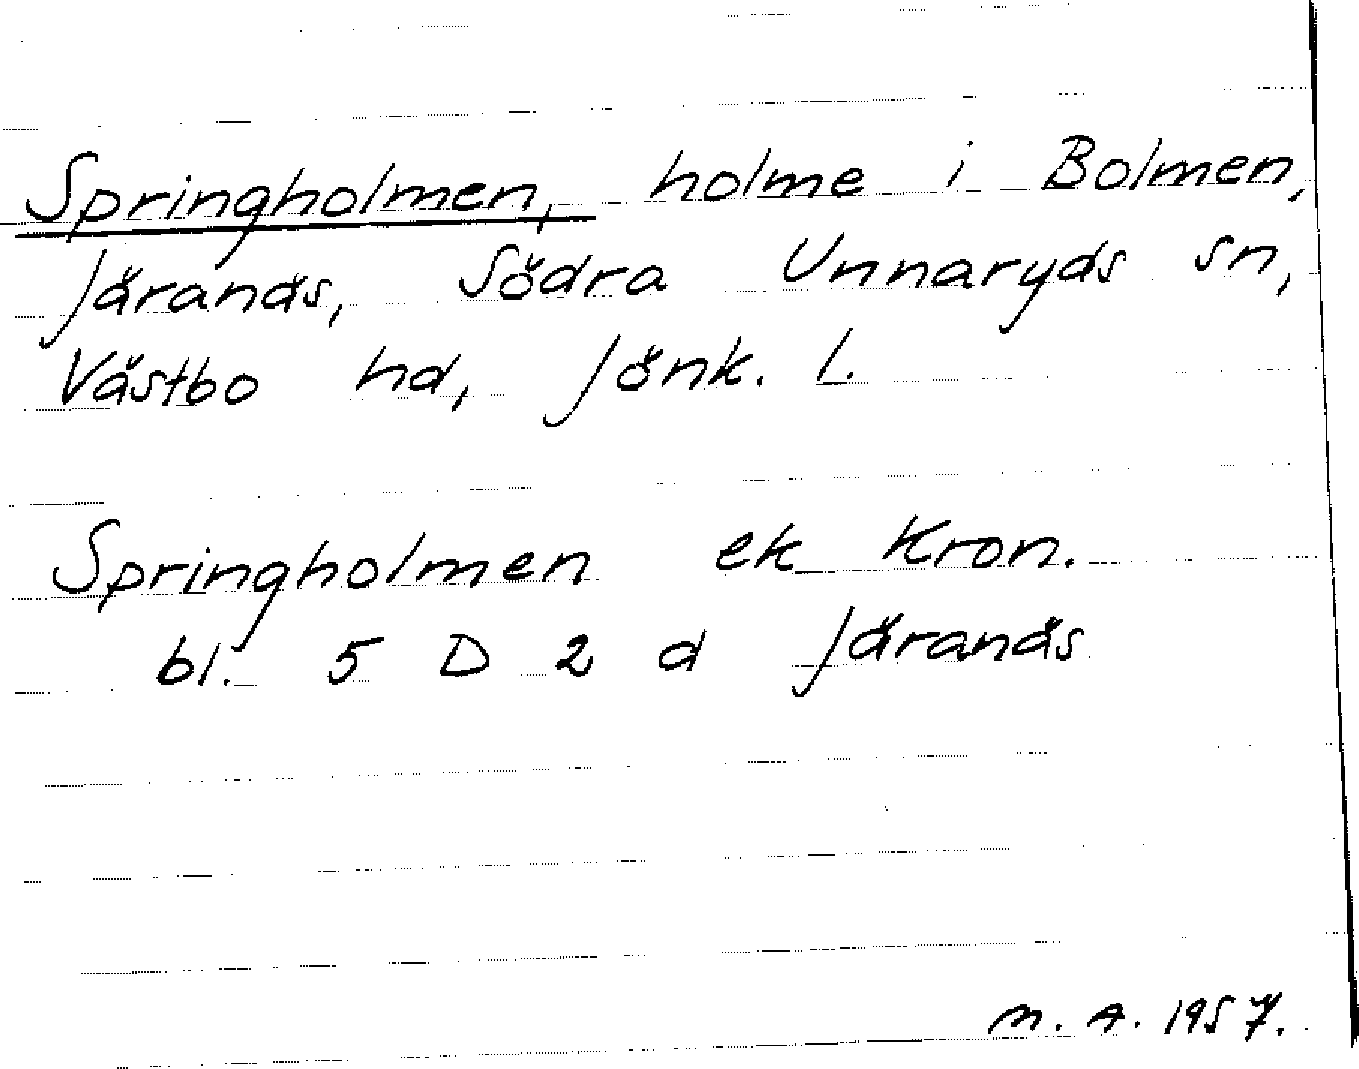 Springholmen, holme i Bolmen,
Järanäs, Södra Unnaryds sn,
Västbo hd, Jönk. l.
Springholmen ek Kron.
bl. 5 D 2 d Järanäs
M. A. 1957.